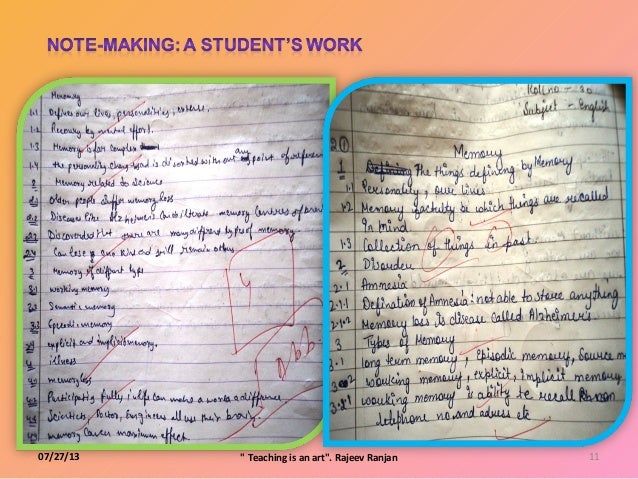 NOTE-MAKING: A STUDENT'S WORK
Memory
1.1 Defines our lives, personalities,
1.2 Recovery by mental effort.
1.3 Memory is for complex
1.4 the personality without any point of
2 Memory related to science
2.1 Older people suffer memory loss
2.2 Diseases like Alzheimers memory
2.3 Discovered that there are many different types of memory.
2.4 Can lose one kind and still remain others
3 Memory of different types
3.1 working memory
3.2 Semantic memory
3.3 memory
3.4 explicit and implicit memory.
4 illness
4.1 memory loss
4.2 Participating fully in life can make a difference
4.3 Scientists Doctor, Engineers all use their brain
4.4 memory career maximum effect
4
Roll no - 30
Subject - English
20
Memory
1 The things defining by Memory
1.1 Personality, our lives
1.2 Memory factulty by which things are recalled
in mind
1.3 Collection of things in past.
2 Disorder
2.1 Amnesia
2.1.1 Defination of Amnesia: not able to store anything
2.1.2 Memory loss is disease called Alzheimer's.
3 Types of Memory
3.1 long term memory, Episodic memory, Source m
working memory, explicit, implicit memory
3.2.1 working memory is ability to recall Person
telephone no. and adress etc
07/27/13
" Teaching is an art". Rajeev Ranjan
11